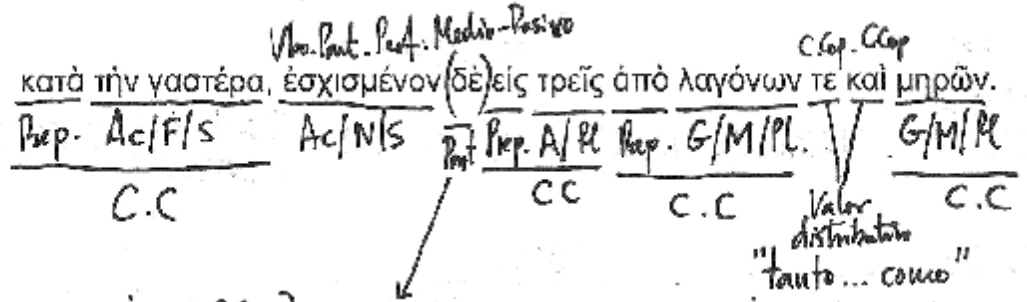 Vbo. Part. Perf. Medio-Pasivo
C.Cop. C.Cop
κατὰ τὴν γαστέρα, ἐσχισμένον (δὲ) εἰς τρεῖς ἀπὸ λαγόνων τε καὶ μηρῶν.
Prep. Ac/F/S Ac/N/S Part Prep. A/Pl Prep. G/M/Pl. G/M/Pl
C.C CC C.C Valor C.C
distributivo
"tanto... como"